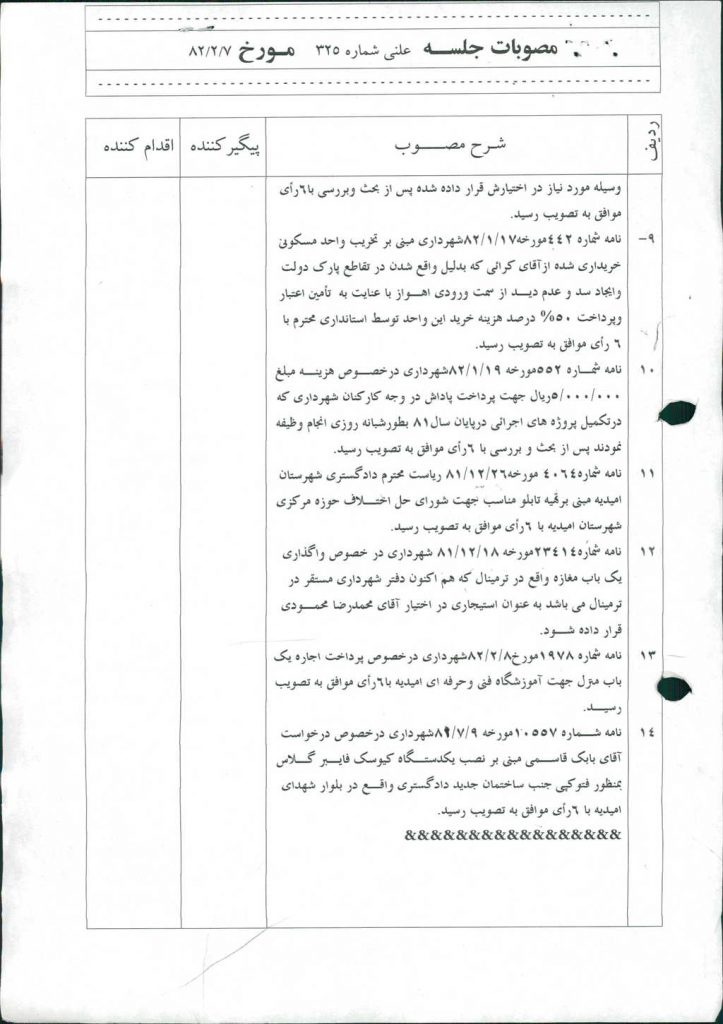 مصوبات جلسه علنی شماره ۳۲۵ مورخ ۸۲/۲/۷
ردیف
شرح مصوب
پیگیرکننده
اقدام کننده
وسیله مورد نیاز در اختیارش قرار داده شده پس از بحث وبررسی با۶رأی
موافق به تصویب رسید.
۹- نامه شماره ۴۴۲مورخه۸۲/۱/۱۷شهرداری مبنی بر تخریب واحد مسکونی
خریداری شده ازآقای کرائی که بدلیل واقع شدن در تقاطع پارک دولت
وایجاد سد و عدم دید از سمت ورودی اهواز با عنایت به تأمین اعتبار
وپرداخت ۵۰% درصد هزینه خرید این واحد توسط استانداری محترم با
۶ رأی موافق به تصویب رسید.
۱۰ نامه شماره ۵۵۲مورخه ۸۲/۱/۱۹شهرداری درخصوص هزینه مبلغ
۵/۰۰۰/۰۰۰ریال جهت پرداخت پاداش در وجه کارکنان شهرداری که
درتکمیل پروژه های اجرائی درپایان سال۸۱ بطورشبانه روزی انجام وظیفه
نمودند پس از بحث و بررسی با ۶رأی موافق به تصویب رسید.
۱۱ نامه شماره۴۰۶۴ مورخه۸۱/۱۲/۲۶ ریاست محترم دادگستری شهرستان
امیدیه مبنی برتهیه تابلو مناسب جهت شورای حل اختلاف حوزه مرکزی
شهرستان امیدیه با ۶رأی موافق به تصویب رسید.
۱۲ نامه شماره۲۳۴۱۴مورخه ۸۱/۱۲/۱۸ شهرداری در خصوص واگذاری
یک باب مغازه واقع در ترمینال که هم اکنون دفتر شهرداری مستقر در
ترمینال می باشد به عنوان استیجاری در اختیار آقای محمدرضا محمودی
قرار داده شود.
۱۳ نامه شماره ۱۹۷۸مورخ۸۲/۲/۸شهرداری درخصوص پرداخت اجاره یک
باب منزل جهت آموزشگاه فنی وحرفه ای امیدیه با۶رأی موافق به تصویب
رسید.
۱۴ نامه شماره ۱۰۵۵۷مورخه ۸۱/۷/۹شهرداری درخصوص درخواست
آقای بابک قاسمی مبنی بر نصب یکدستگاه کیوسک فایبر گلاس
بمنظور فتوکپی جنب ساختمان جدید دادگستری واقع در بلوار شهدای
امیدیه با ۶رأی موافق به تصویب رسید.
&&&&&&&&&&&&&&&&&